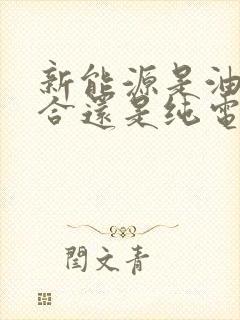 新能源是油
合還是纯電
閆文青